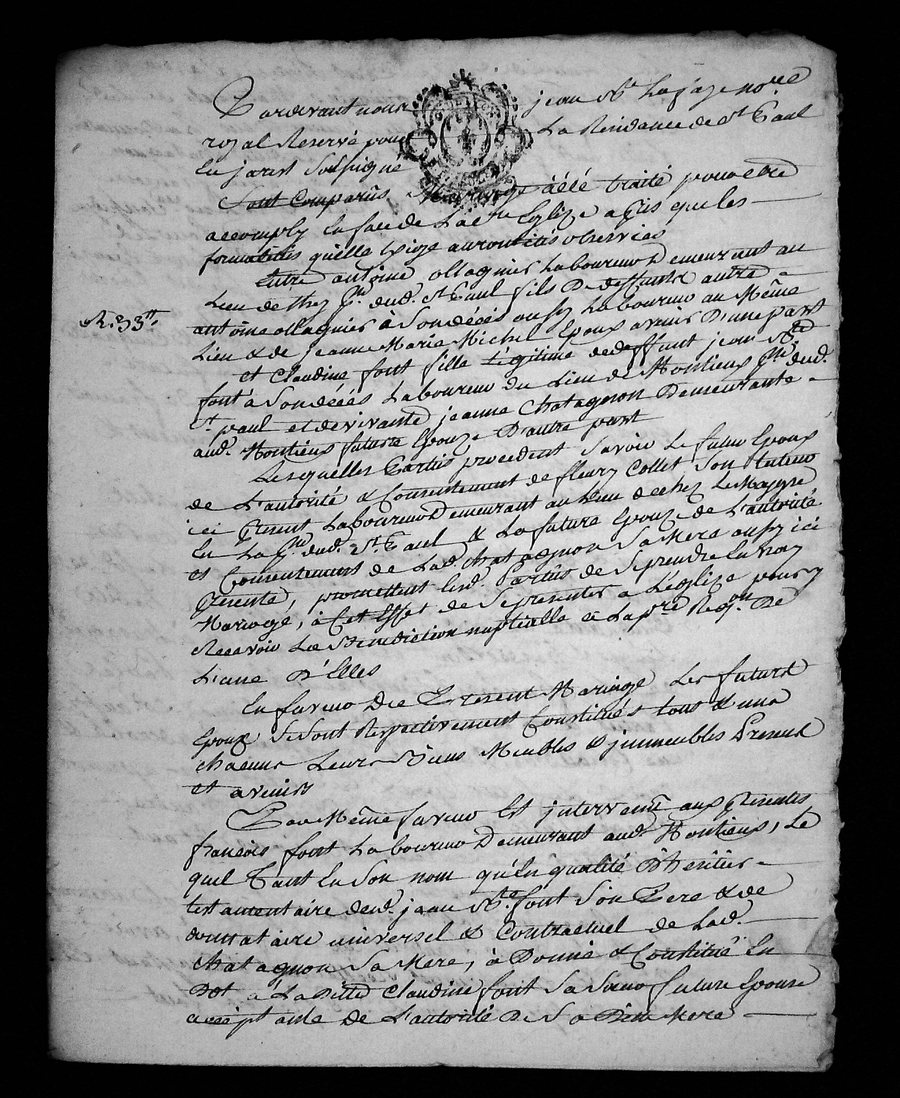 Pardevant nous jean Bte Lafaye nore
royal Reservé pour La Residance de st Paul
En jarest Soussigné
Sont Comparus Mariage a été traité pour etre
accomply En face de La ste Eglize apres que les
formalités qu'elle Exige auront étés observées
Entre antoine ollagnier Laboureur Demeurant au
Lieu de chez pse dud. st Paul fils De deffunt autre
antoine ollagnier à Son décés aussy Laboureur au Même
Lieu & de jeanne Marie Michel Epoux avenir D'une part
et Claudine font fille Légitime de deffunt jean Bte
font à Son décés Laboureur du Lieu de Montieux psse dud.
st paul et de vivante jeanne Chatagnon Demeurante
aud. Montieux future Epouze D'autre part
Lesquelles Parties procedent Savoir Le futur Epoux
de L'autorité & Consentement de fleury Collet Son tuteur
ici present Laboureur Demeurant au Lieu de chez Le Mayre
En La psse dud. St Paul & La future Epouze de L'autorité
et Consentement de Lad. chatagnon Sa Mere aussy ici
presente, promettent Lesd. Parties de Se prendre En vray
Mariage, à Cet Effet de Se presenter à L'eglize pour y
Recevoir La Benediction nuptialle à La pre Reqon De
L'une D'Elles
En faveur du Present Mariage Les futurs
Epoux Se Sont Respectivement Constitués tous & un
chacuns Leurs Biens Meubles & jmmeubles Presents
et avenirs
En Même faveur Est jntervenu aux presentes
françois font Laboureur Demeurant aud. Montieux, Le
quel tant En Son nom qu'En qualité D'heritier
testamentaire dud. jean Bte font Son Pere & de
donnataire universel & Contractuel de Lad.
chatagnon Sa Mere, à Donné & Constitué En
Dot à La Ditte Claudine font Sa Sœur future Epouse
acceptante de L'autorité De Sa Ditte Mere
R. 33tt